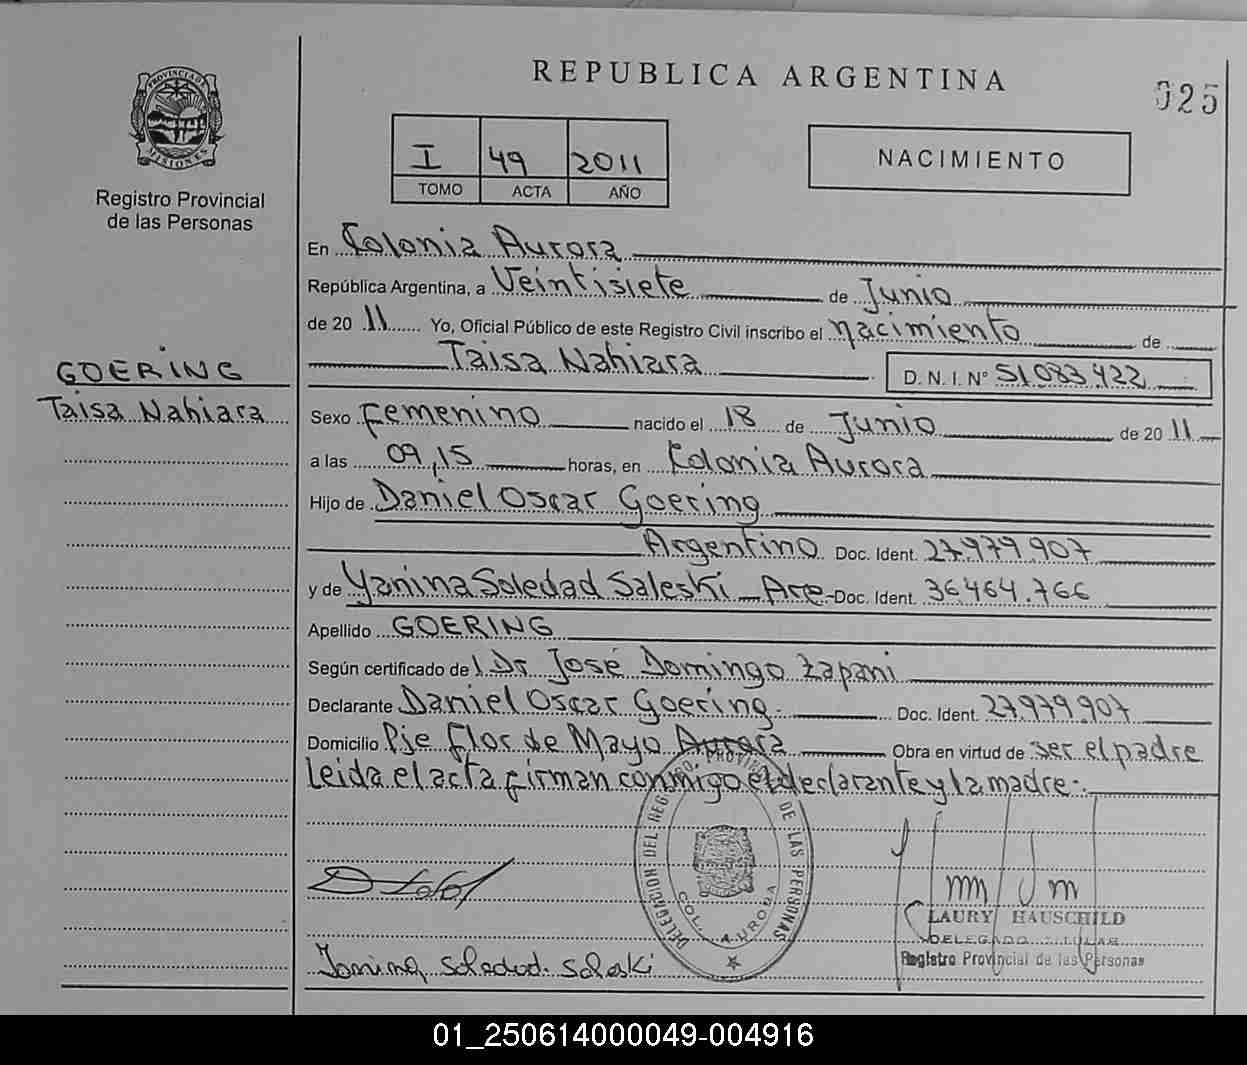 REPUBLICA ARGENTINA
025
PROVINCIA DE MISIONES
Registro Provincial
de las Personas
I 49 2011
TOMO ACTA AÑO
NACIMIENTO
En Colonia Aurora
República Argentina, a Veintisiete de Junio
de 20 11 Yo, Oficial Público de este Registro Civil inscribo el nacimiento de
Taisa Nahiara D. N. I. N° 51.083.422
GOERING
Taisa Nahiara
Sexo Femenino nacido el 18 de Junio de 20 11
a las 09,15 horas, en Colonia Aurora
Hijo de Daniel Oscar Goering
Argentino Doc. Ident. 27.979.907
y de Yanina Soledad Saleski Doc. Ident. 36.464.766
Apellido GOERING
Según certificado de l Dr José Domingo Zapani
Declarante Daniel Oscar Goering Doc. Ident. 27.979.907
Domicilio Pje Flor de Mayo Aurora Obra en virtud de ser el padre
Leida el acta firman conmigo el declarante y la madre
DELEGACION DEL REGISTRO PROVINCIAL DE LAS PERSONAS
COL. AURORA
LAURY HAUSCHILD
DELEGADO TITULAR
Registro Provincial de las Personas
Yanina Soledad Saleski
01_250614000049-004916